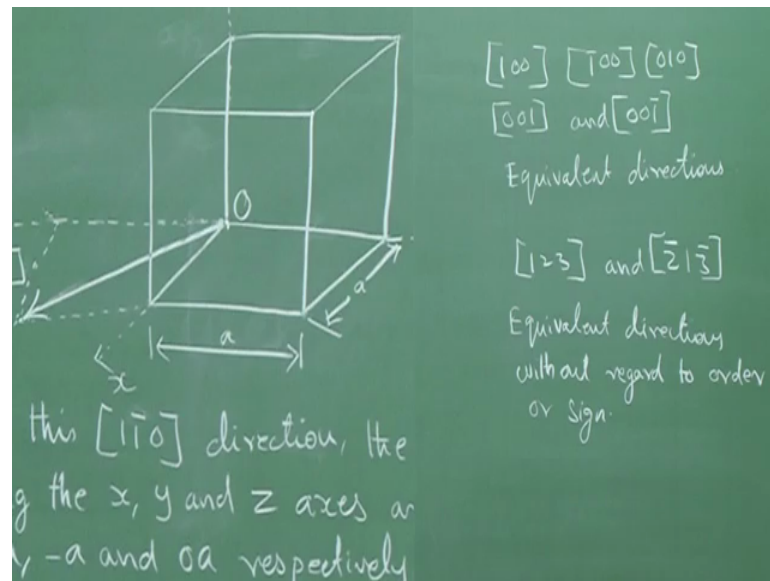 O
a
a
x
]
this [11̄0] direction, the
g the x, y and z axes a
, -a and 0a respectively
[100] [1̄00] [010]
[001] and [001̄]
Equivalent directions
[123] and [2̄13̄]
Equivalent directions
without regard to order
or sign.